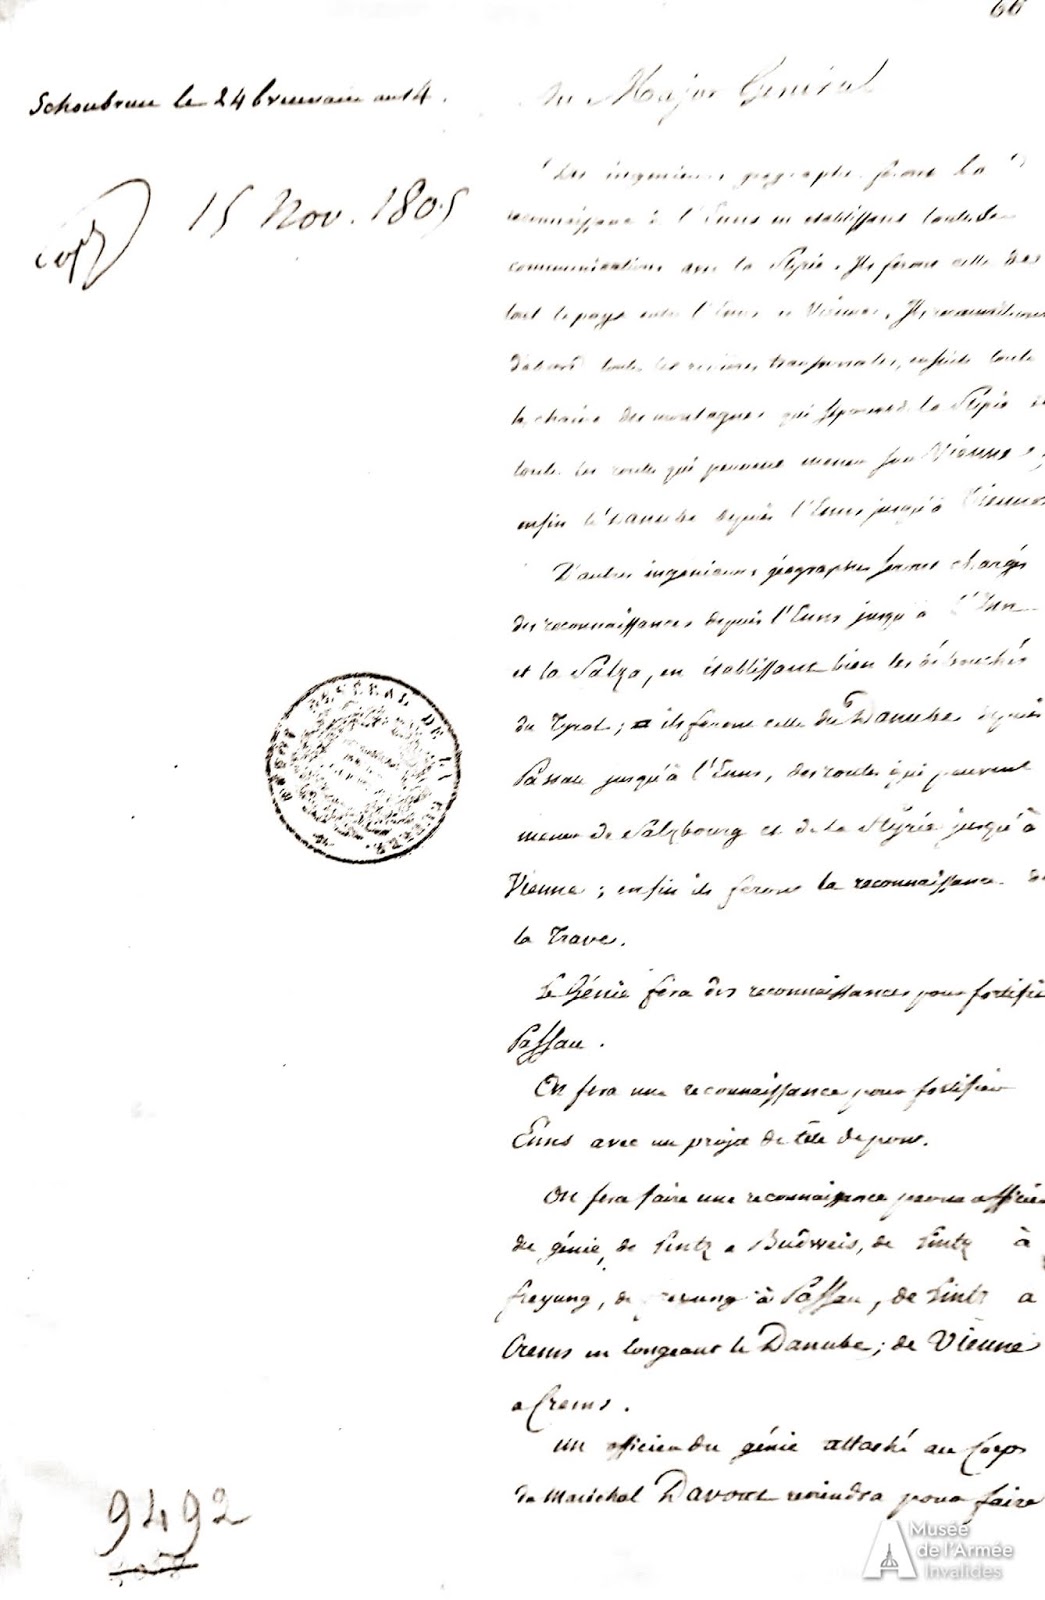 66
Schonbrun le 24 brumaire an 14.
Au Major Général
15 Nov. 1805
Des ingénieurs géographes feront la
reconnaissance de l'Enns en établissant toutes les
communications avec la Styrie. Ils feront celle de
tout le pays entre l'Enns et Vienne. Ils reconnaîtront
d'abord toutes les rivières transversales, ensuite toute
la chaîne des montagnes qui séparent la Styrie et
toutes les routes qui peuvent mener sur Vienne,
enfin le Danube depuis l'Enns jusqu'à Vienne
D'autres ingénieurs géographes seront chargés
des reconnaissances depuis l'Enns jusqu'à l'Inn
et la Salza, en établissant bien les débouchés
du Tyrol; ils feront celle du Danube depuis
Passau jusqu'à l'Enns, des routes qui peuvent
mener de Salzbourg et de la Styrie jusqu'à
Vienne; enfin ils feront la reconnaissance de
la Trave.
Le Génie fera des reconnaissances pour fortifier
Passau.
On fera une reconnaissance pour fortifier
Enns avec un projet de tête de pont.
On fera faire une reconnaissance par un officier
du génie, de Lintz a Budweis, de Lintz à
freyung, de freyung à Passau, de Lintz a
Crems en longeant le Danube; de Vienne
a Crems.
un officier du génie attaché au Corps
du Maréchal Davout viendra pour faire
9492
Musée
de l'Armée
Invalides